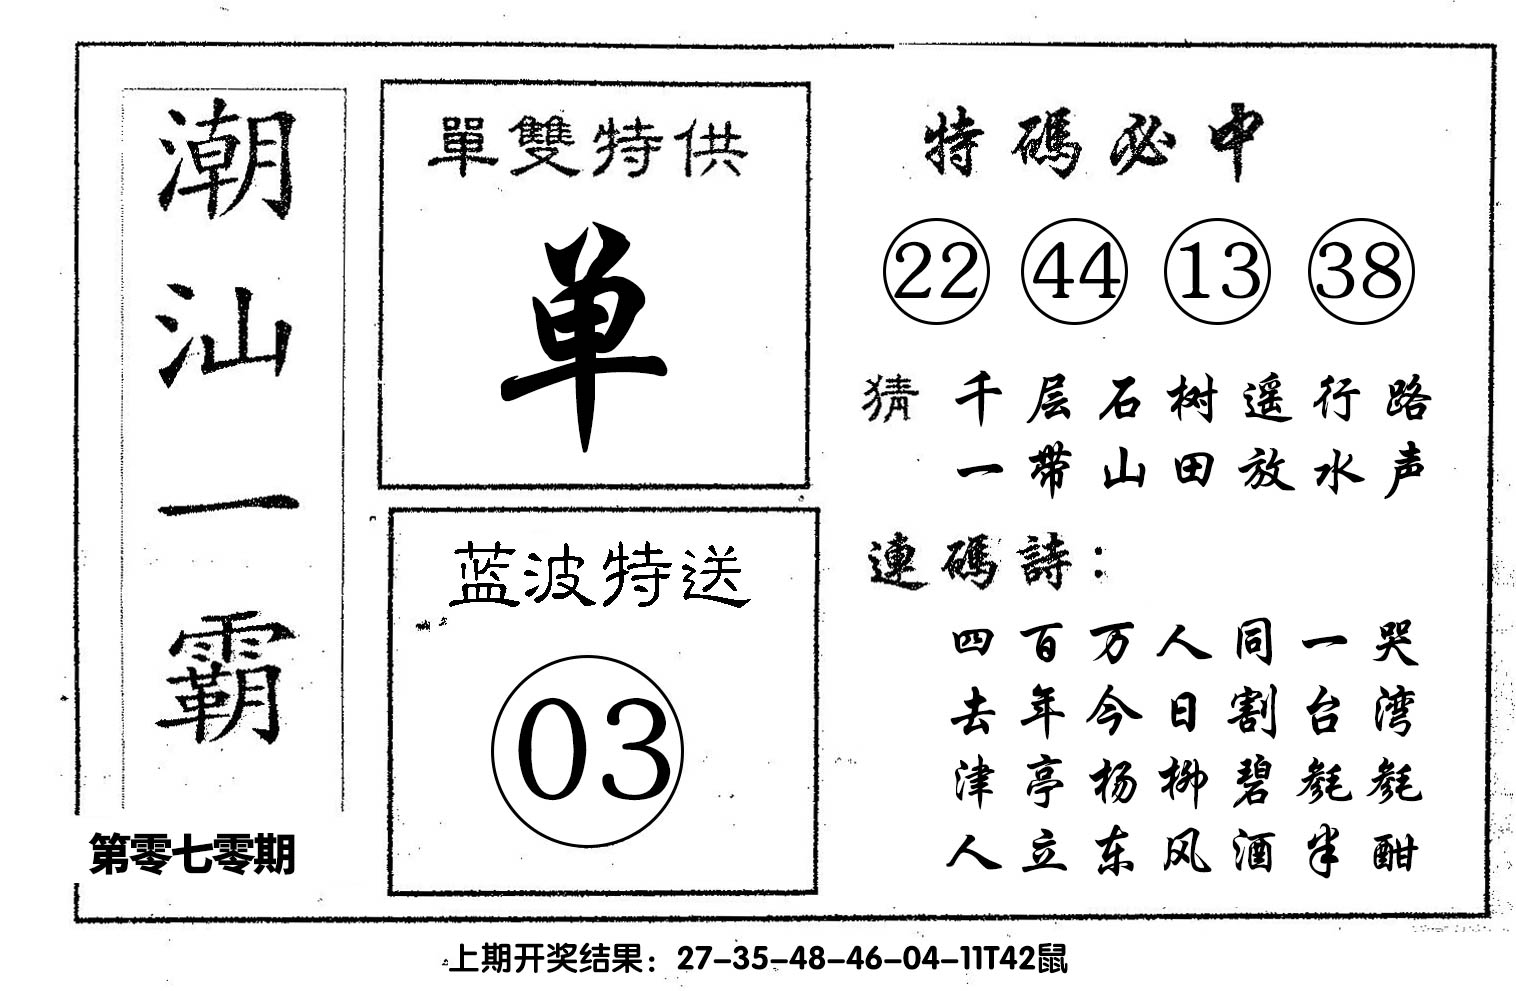 潮汕一霸
第零七零期
單雙特供
单
蓝波特送
03
特碼必中
22 44 13 38
猜 千层石树遥行路
一带山田放水声
連碼詩：
四百万人同一哭
去年今日割台湾
津亭杨柳碧毿毿
人立东风酒半酣
上期开奖结果：27-35-48-46-04-11T42鼠